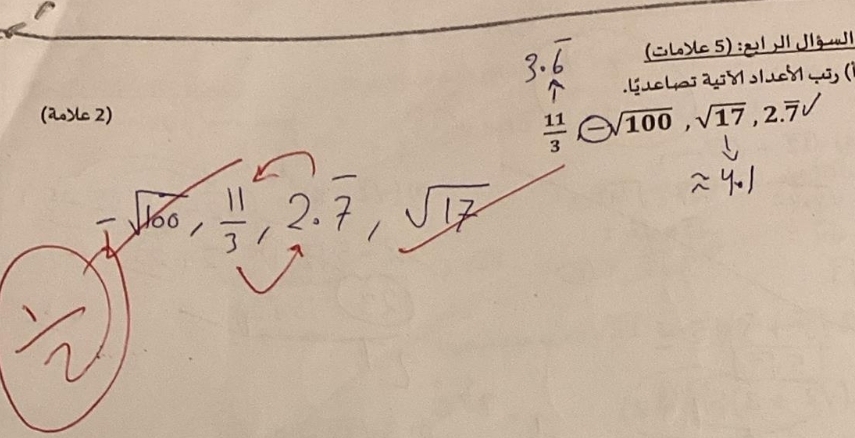 السؤال الرابع: (5 علامات)
أ) رتب الأعداد الآتية تصاعديًا.
(2 علامة)
3.6̅
↑
11/3 , −√100 , √17 , 2.7̅ ✓
↓
≈ 4.1
−√100 , 11/3 , 2.7̅ , √17
1/2